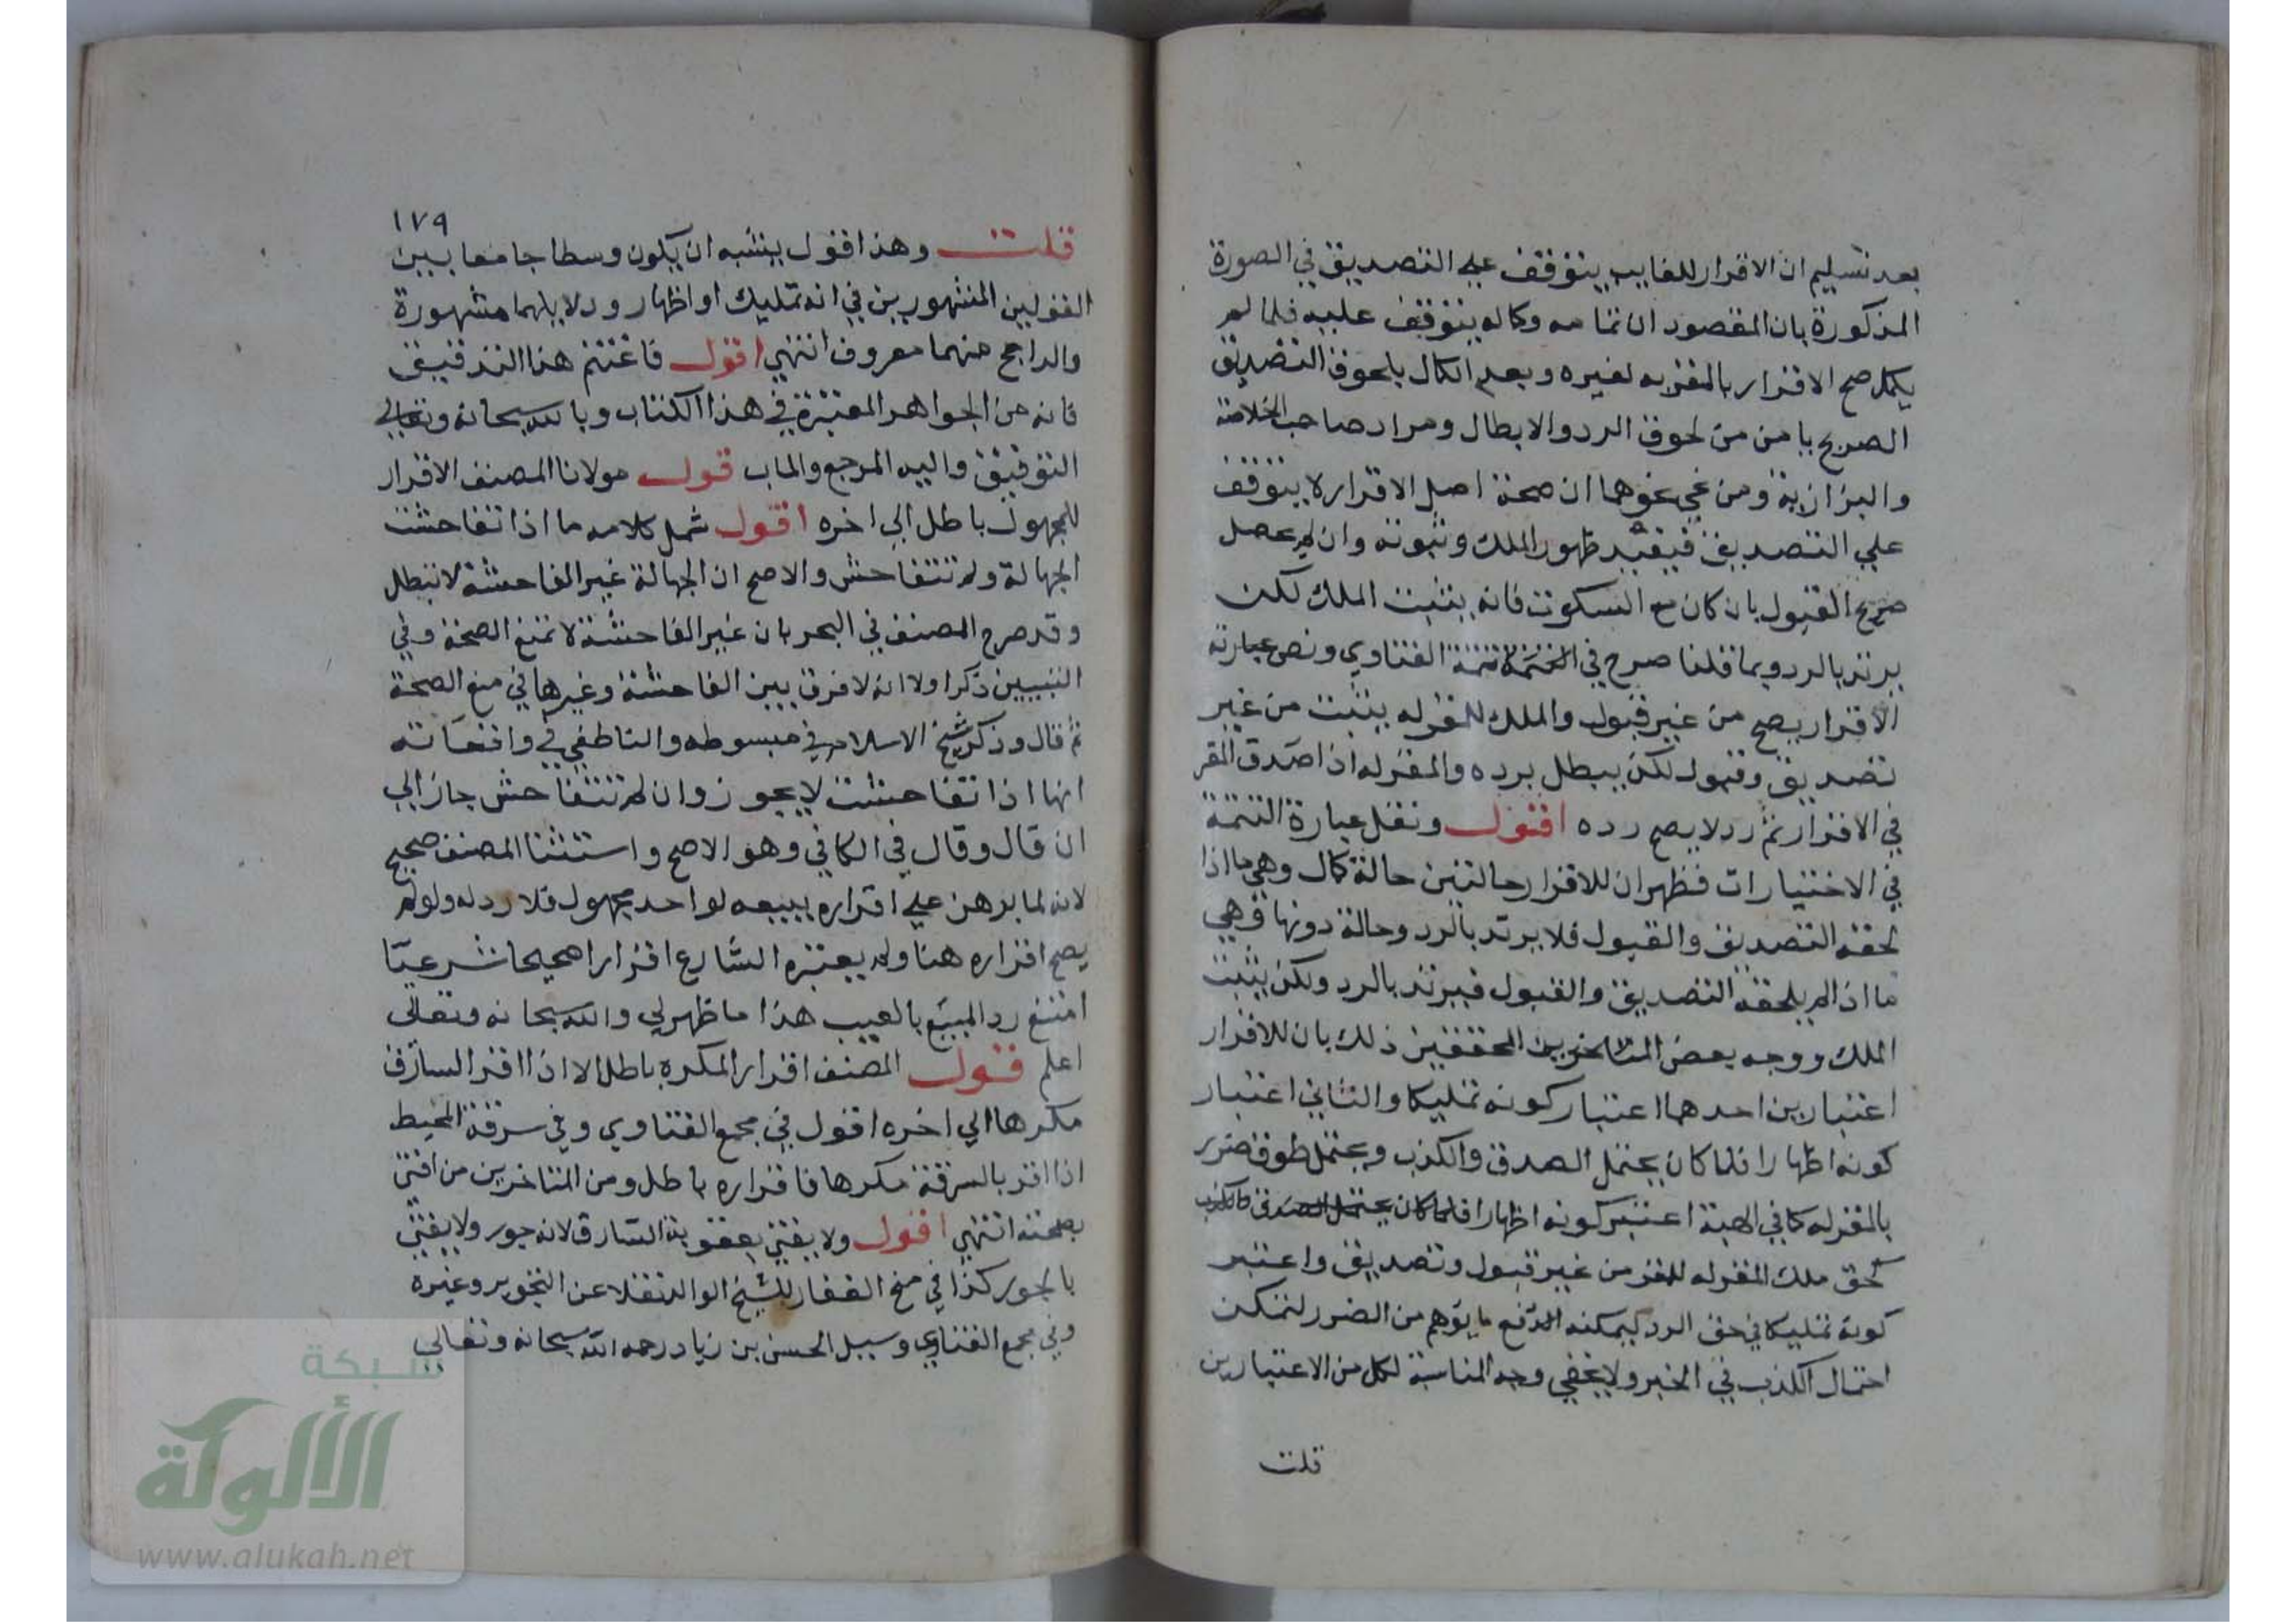 بعد تسليم ان الاقرار للغايب يتوقف علي التصديق في الصورة
المذكورة بان المقصود ان تمامه وكماله يتوقف عليه فلما لم
يكمل صح الاقرار بالمقر به لغيره وبعد الكمال بلحوق التصديق
الصريح يامن من لحوق الرد والابطال ومراد صاحب الخلاصة
والبزازية ومن نحي نحوهما ان صحة اصل الاقرار لا يتوقف
علي التصديق فيفيد ظهور الملك وثبوته وان لم يحصل
صريح القبول بان كان مع السكوت فانه يثبت الملك لكن
يرتد بالرد وبما قلنا صرح في تتمة الفتاوي ونص عبارته
الاقرار يصح من غير قبول والملك للمقر له يثبت من غير
تصديق وقبول لكن يبطل برده والمقر له اذا صدق المقر
في الاقرار ثم رد لا يصح رده اقول ونقل عبارة التتمة
في الاختيارات فظهر ان للاقرار حالتين حالة كمال وهي ما اذا
لحقه التصديق والقبول فلا يرتد بالرد وحالة دونها وهي
ما اذا لم يلحقه التصديق والقبول فيرتد بالرد ولكن يثبت
الملك ووجه بعض المتاخرين المحققين ذلك بان للاقرار
اعتبارين احدهما اعتبار كونه تمليكا والثاني اعتبار
كونه اظهارا فلما كان يحتمل الصدق والكذب ويحتمل لحوق ضرر
بالمقر له كما في الهبة اعتبر كونه اظهارا فلما كان يحتمل الصدق والكذب
لحق ملك المقر له للمقر من غير قبول وتصديق واعتبر
كونه تمليكا في حق الرد ليمكنه الدفع ما يوهم من الضرر لتمكن
احتمال الكذب في الخبر ولا يخفي وجه المناسبة لكل من الاعتبارين
قلت
١٧٩
قلت وهذا القول يشبه ان يكون وسطا جامعا بين
القولين المشهورين في انه تمليك او اظهار ودلايلهما مشهورة
والراجح منهما معروف انتهي اقول فاغتنم هذا التدقيق
فانه من الجواهر المعتبرة في هذا الكتاب وبالله سبحانه وتعالي
التوفيق واليه المرجع والماب قول مولانا المصنف الاقرار
للمجهول باطل الي اخره اقول شمل كلامه ما اذا تفاحشت
الجهالة ولم تتفاحش والاصح ان الجهالة غير الفاحشة لا تبطل
وقد صرح المصنف في البحر بان غير الفاحشة لا تمنع الصحة وفي
التبيين ذكر اولا انه لا فرق بين الفاحشة وغيرها في منع الصحة
ثم قال وذكر شيخ الاسلام في مبسوطه والناطفي في واقعاته
انها اذا تفاحشت لا يجوز وان لم تتفاحش جاز الي
ان قال وقال في الكافي وهو الاصح واستثنا المصنف صحيح
لانه لما برهن علي اقراره ببيعه لواحد مجهول فلا رد له ولو لم
يصح اقراره هنا ولم يعتبره الشارع اقرارا صحيحا شرعيا
امتنع رد المبيع بالعيب هذا ما ظهر لي والله سبحانه وتعالي
اعلم قول المصنف اقرار المكره باطل الا اذا اقر السارق
مكرها الي اخره اقول في مجمع الفتاوي وفي سرقة المحيط
اذا اقر بالسرقة مكرها فاقراره باطل ومن المتاخرين من افتي
بصحته انتهي اقول ولا يفتي بعقوبة السارق لانه جور ولا يفتي
بالجور كذا في منح الغفار للشيخ الوالد نقلا عن التجوير وغيره
وفي مجمع الفتاوي وسيل الحسن بن زياد رحمه الله سبحانه وتعالي
شبكة
الألوكة
www.alukah.net